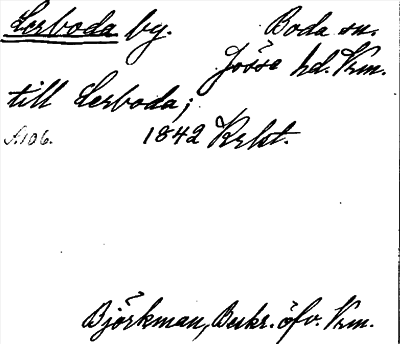 Lerboda by. Boda sn.
Jösse hd. Vrm.
till Lerboda;
s. 106. 1842 Krkt.
Björkman, Beskr. öfv. Vrm.